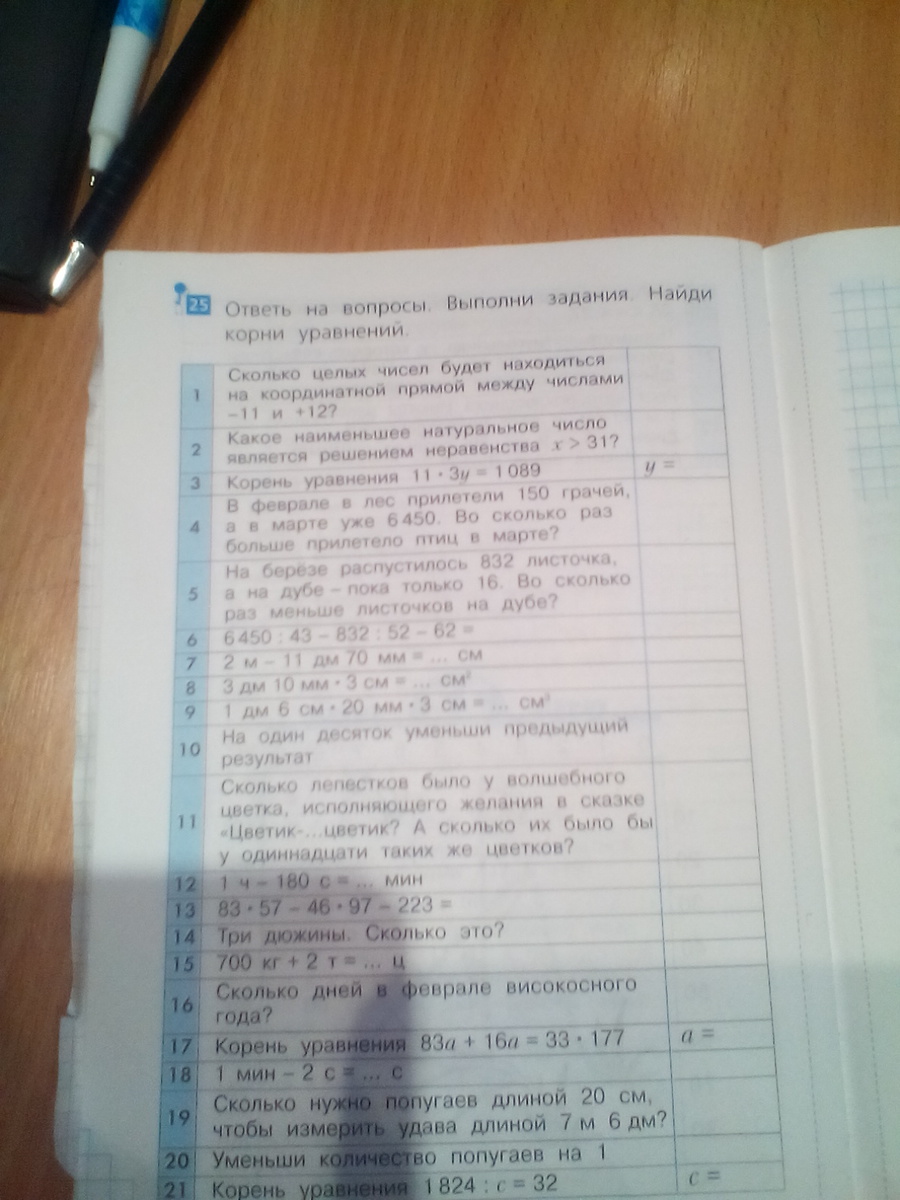 25 Ответь на вопросы. Выполни задания. Найди
корни уравнений.
1 Сколько целых чисел будет находиться
на координатной прямой между числами
−11 и +12?
2 Какое наименьшее натуральное число
является решением неравенства x > 31?
3 Корень уравнения 11 · 3y = 1 089 y =
4 В феврале в лес прилетели 150 грачей,
а в марте уже 6 450. Во сколько раз
больше прилетело птиц в марте?
5 На берёзе распустилось 832 листочка,
а на дубе – пока только 16. Во сколько
раз меньше листочков на дубе?
6 6 450 : 43 − 832 : 52 − 62 =
7 2 м − 11 дм 70 мм = ... см
8 3 дм 10 мм · 3 см = ... см²
9 1 дм 6 см · 20 мм · 3 см = ... см³
10 На один десяток уменьши предыдущий
результат
11 Сколько лепестков было у волшебного
цветка, исполняющего желания в сказке
«Цветик-...цветик? А сколько их было бы
у одиннадцати таких же цветков?
12 1 ч − 180 с = ... мин
13 83 · 57 − 46 · 97 − 223 =
14 Три дюжины. Сколько это?
15 700 кг + 2 т = ... ц
16 Сколько дней в феврале високосного
года?
17 Корень уравнения 83a + 16a = 33 · 177 a =
18 1 мин − 2 с = ... с
19 Сколько нужно попугаев длиной 20 см,
чтобы измерить удава длиной 7 м 6 дм?
20 Уменьши количество попугаев на 1
21 Корень уравнения 1 824 : c = 32 c =